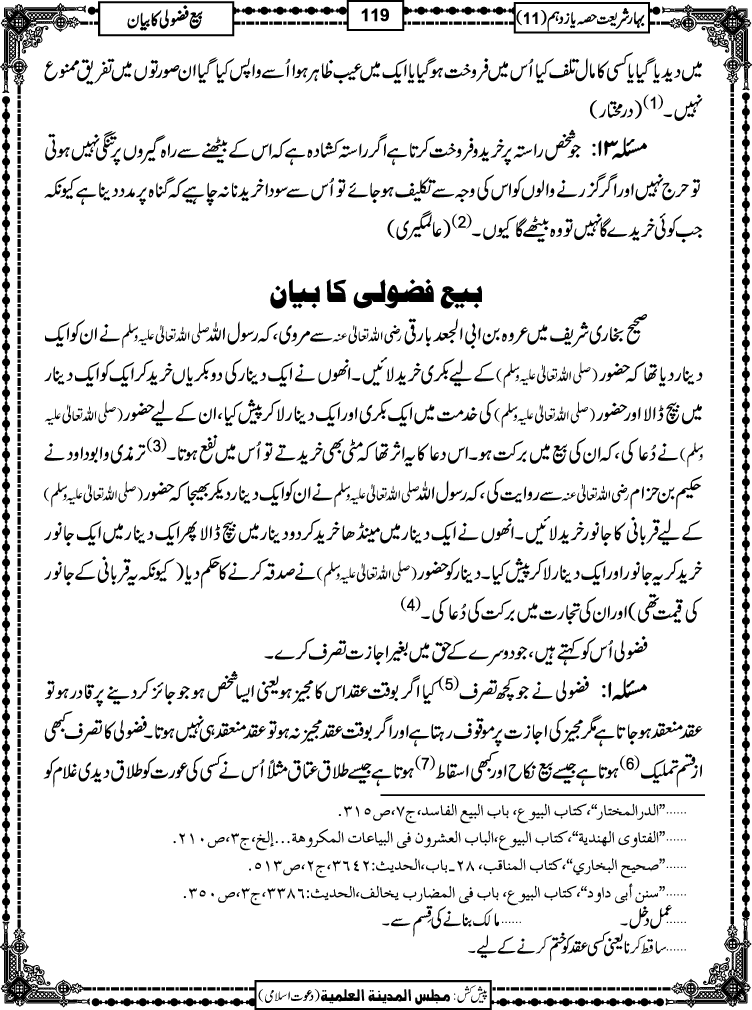 بہارِ شریعت حصہ یازدہم (11)
119
بیع فضولی کا بیان
میں دیدیا گیا یا کسی کا مال تلف کیا اُس میں فروخت ہوگیا یا ایک میں عیب ظاہر ہوا اُسے واپس کیا گیا ان صورتوں میں تفریق ممنوع
نہیں۔(1) (درمختار)
مسئلہ ۱۳: جو شخص راستہ پر خرید و فروخت کرتا ہے اگر راستہ کشادہ ہے کہ اس کے بیٹھنے سے راہ گیروں پر تنگی نہیں ہوتی
تو حرج نہیں اور اگر گزرنے والوں کو اس کی وجہ سے تکلیف ہوجائے تو اُس سے سودا خریدنا نہ چاہیے کہ گناہ پر مدد دینا ہے کیونکہ
جب کوئی خریدے گا نہیں تو وہ بیٹھے گا کیوں۔(2) (عالمگیری)
بیع فضولی کا بیان
صحیح بخاری شریف میں عروہ بن ابی الجعد بارقی رضی اللہ تعالیٰ عنہ سے مروی، کہ رسول اللہ صلی اللہ تعالیٰ علیہ وسلم نے ان کو ایک
دینار دیا تھا کہ حضور (صلی اللہ تعالیٰ علیہ وسلم) کے لیے بکری خرید لائیں۔ انھوں نے ایک دینار کی دو بکریاں خرید کر ایک کو ایک دینار
میں بیچ ڈالا اور حضور (صلی اللہ تعالیٰ علیہ وسلم) کی خدمت میں ایک بکری اور ایک دینار لا کر پیش کیا، ان کے لیے حضور (صلی اللہ تعالیٰ علیہ
وسلم) نے دُعا کی، کہ ان کی بیع میں برکت ہو۔ اس دعا کا یہ اثر تھا کہ مٹی بھی خریدتے تو اُس میں نفع ہوتا۔(3) ترمذی و ابو داود نے
حکیم بن حزام رضی اللہ تعالیٰ عنہ سے روایت کی، کہ رسول اللہ صلی اللہ تعالیٰ علیہ وسلم نے ان کو ایک دینار دیکر بھیجا کہ حضور (صلی اللہ تعالیٰ علیہ وسلم)
کے لیے قربانی کا جانور خرید لائیں۔ انھوں نے ایک دینار میں مینڈھا خرید کر دو دینار میں بیچ ڈالا پھر ایک دینار میں ایک جانور
خرید کر یہ جانور اور ایک دینار لا کر پیش کیا۔ دینار کو حضور (صلی اللہ تعالیٰ علیہ وسلم) نے صدقہ کرنے کا حکم دیا (کیونکہ یہ قربانی کے جانور
کی قیمت تھی) اور ان کی تجارت میں برکت کی دُعا کی۔(4)
فضولی اُس کو کہتے ہیں، جو دوسرے کے حق میں بغیر اجازت تصرف کرے۔
مسئلہ ۱: فضولی نے جو کچھ تصرف(5) کیا اگر بوقت عقد اس کا مجیز ہو یعنی ایسا شخص ہو جو جائز کردینے پر قادر ہو تو
عقد منعقد ہوجاتا ہے مگر مجیز کی اجازت پر موقوف رہتا ہے اور اگر بوقت عقد مجیز نہ ہو تو عقد منعقد ہی نہیں ہوتا۔ فضولی کا تصرف کبھی
از قسم تملیک(6) ہوتا ہے جیسے بیع نکاح اور کبھی اسقاط(7) ہوتا ہے جیسے طلاق عتاق مثلاً اُس نے کسی کی عورت کو طلاق دیدی غلام کو
......"الدرالمختار"، کتاب البیوع، باب البیع الفاسد، ج۷، ص۳۱۵.
......"الفتاوی الهندیة"، کتاب البیوع، الباب العشرون فی البیاعات المکروهة...إلخ، ج۳، ص۲۱۰.
......"صحیح البخاري"، کتاب المناقب، ۲۸۔باب، الحدیث: ۳۶۴۲، ج۲، ص۵۱۳.
......"سنن أبی داود"، کتاب البیوع، باب فی المضارب یخالف، الحدیث: ۳۳۸۶، ج۳، ص۳۵۰.
......عمل دخل۔ ......مالک بنانے کی قسم سے۔
......ساقط کرنا یعنی کسی عقد کو ختم کرنے کے لیے۔
پیش کش: مجلس المدینة العلمیة (دعوتِ اسلامی)